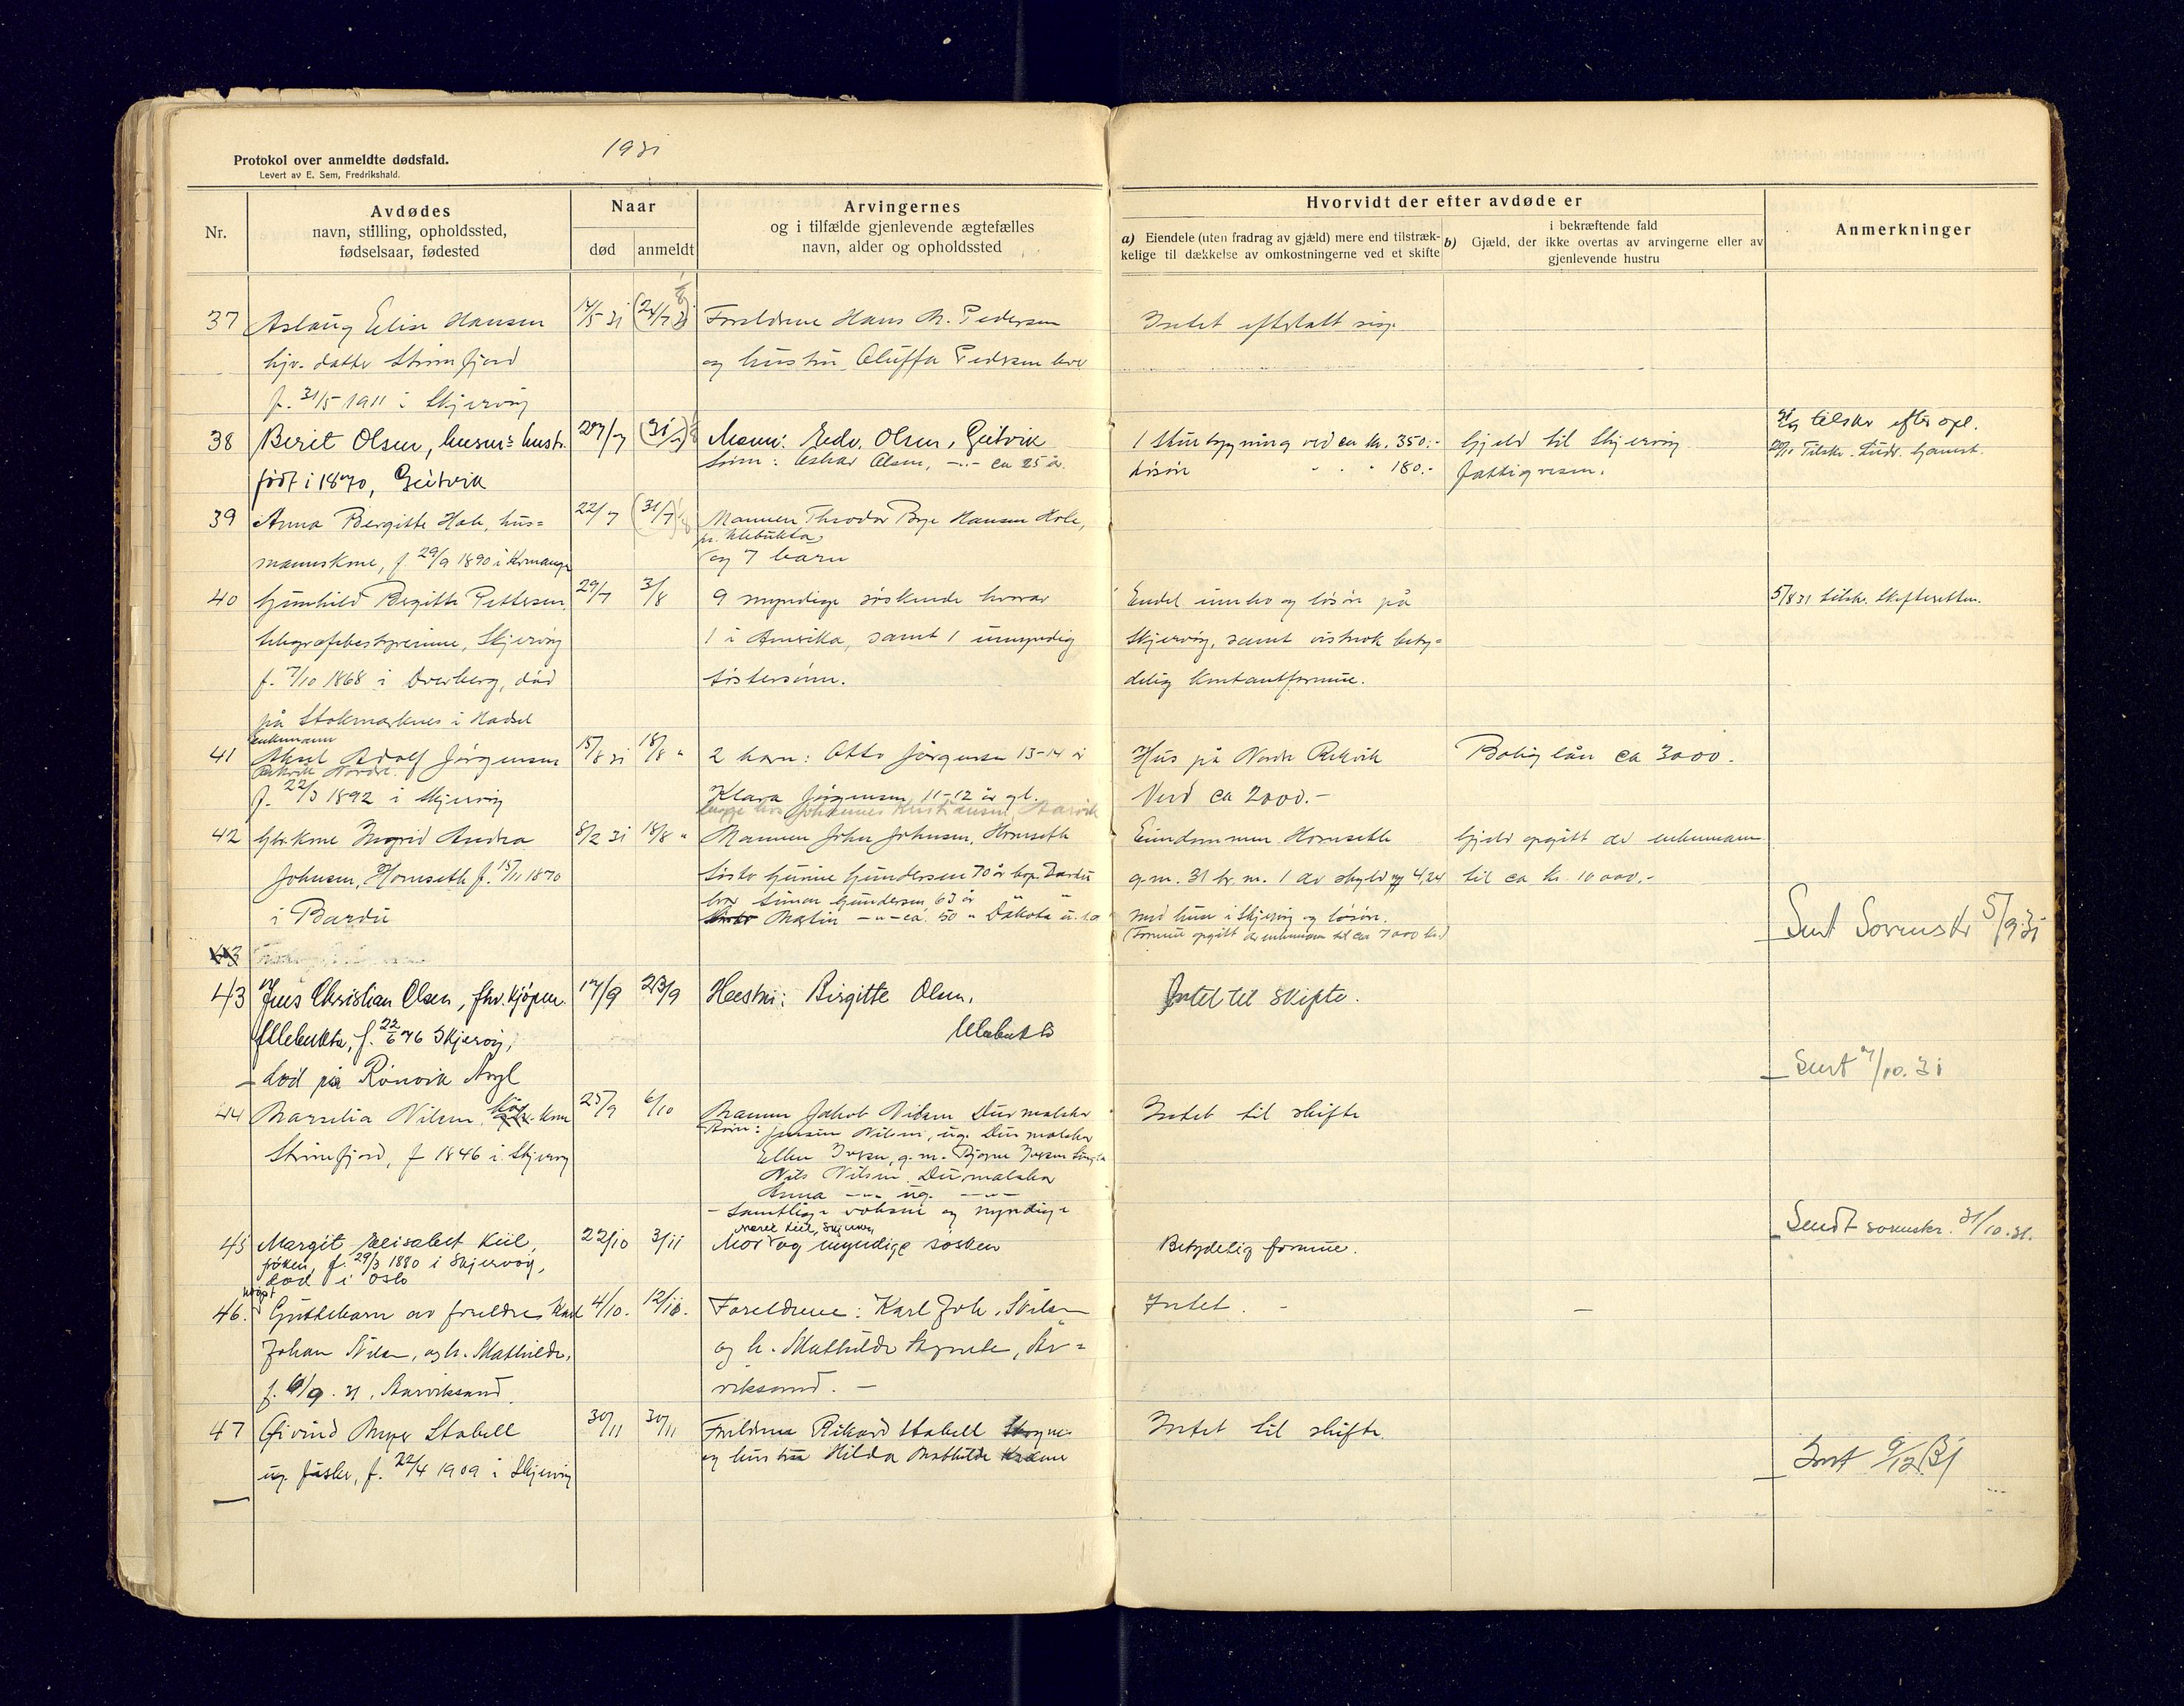 1931
Protokol over anmeldte dødsfald.
Levert av E. Sem, Fredrikshald.
Nr.
Avdødes
navn, stilling, opholdssted,
fødselsaar, fødested
Naar
død
anmeldt
Arvingernes
og i tilfælde gjenlevende ægtefælles
navn, alder og opholdssted
Hvorvidt der efter avdøde er
a) Eiendele (uten fradrag av gjæld) mere end tilstræk-
kelige til dækkelse av omkostningerne ved et skifte
i bekræftende fald
b) Gjæld, der ikke overtas av arvingerne eller av
gjenlevende hustru
Anmerkninger
37 Aslaug Elise Hansen
hjv. datter Strømfjord
f. 31/5 1911 i Skjervøy
Foreldrene Hans M. Pedersen
og hustru Oluffa Pedersen
Intet efterlatt sig.
38 Berit Olsen, husm= hustr.
født i 1870, Geitvik
27/7 (31/7)
Mann: Edv. Olsen, Geitvik
Sønn: Oskar Olsen, -"- ca 25 år.
1 bygning verd ca kr. 350.-
Løsøre " " " 180.-
Gjeld til Skjervøy
fattigvesen.
tilskr efter opl.
39 Anna Bergitte Hole, hus=
mannskone, f. 29/9 1890 i
22/7 (31/7)
Mannen Theodor Hansen Hole,
og 7 barn
40 Gunhild Bergitte Pettersen,
telegrafbestyrerinne, Skjervøy
f. 7/10 1868 i Overberg, død
på Stokmarknes i Hadsel
29/7 3/8
9 myndige søskende hvorav
1 i Amerika, samt 1 umyndig
søstersønn.
Endel innbo og løsøre på
Skjervøy, samt visstnok bety=
delig kontantformue.
5/8 31 tilskr. Skifteretten.
41 Enkemann
Aksel Adolf Jørgensen
f. 22/3 1892 i Skjervøy
15/8 31 18/8 "
2 barn: Otto Jørgensen 13-14 år
Klara Jørgensen 11-12 år gl.
begge hos Johannes Kristiansen,
Hus på Nordre Rekvik
Verd ca 2000.-
Boliglån ca 3000.
42 Gbr.kone Ingrid Andrea
Johnsen, Hornseth f. 15/11 1870
i Bardu
8/2 31 18/8 "
Mannen John Johnsen, Hornseth
Søster Gunder­sen 70 år Bardu
bror Simon Gundersen, 63 år
Martin -"- ca. 50 " Dakota
Eiendommen Hornseth
g.nr. 31 br.nr. 1 av skyld 4,24
med hus i Skjervøy og løsøre.
(Formue opgitt av enkemann til ca 7000 kr.)
Gjeld opgitt av enkemann
til ca kr. 10 000.-
Sent Sorenskr 5/9 31
43
43 Jens Christian Olsen, fhv. kjøpm.
Ulebukta, f. 22/6 76 Skjervøy,
død på Rønvik Asyl
17/9 23/9
Hustru: Birgitte Olsen,
Ulebukta
Intet til skifte.
Sent 7/10. 31
44 Marselia Nilsen
Strømfjord, f 1846 i Skjervøy
25/9 6/10
Mannen Jakob Nilsen Durmålshor
Barn: Jensine Nilsen, ug. Durmålshor
Ellen Iversen, g. m. Bjarne Iversen
Nils Nilsen Durmålshor
Anna -"- ug. -"-
- Samtlige voksne og myndige
Intet til skifte
Sendt sorenskr. 31/10.31.
45 Margit Elisabet Kiil,
frøken, f. 29/3 1880 i Skjervøy,
død i Oslo
22/10 3/11
Mor og myndige søsken
Betydelig formue.
46. Guttebarn av foreldre Karl
Johan Nilsen, og h. Mathilde,
f. 6/9. 31, Aarviksand.
4/10. 12/10.
Foreldrene: Karl Joh. Nilsen
og h. Mathilde Agnete, År=
viksand. -
Intet. - -
47 Øivind Meyer Stabell
ug. fisker, f. 22/4 1909 i Skjervøy
30/11 30/11
Foreldrene Rikard Stabell
og hustru Hilda Mathilde
Intet til skifte.
Sent 9/12 31